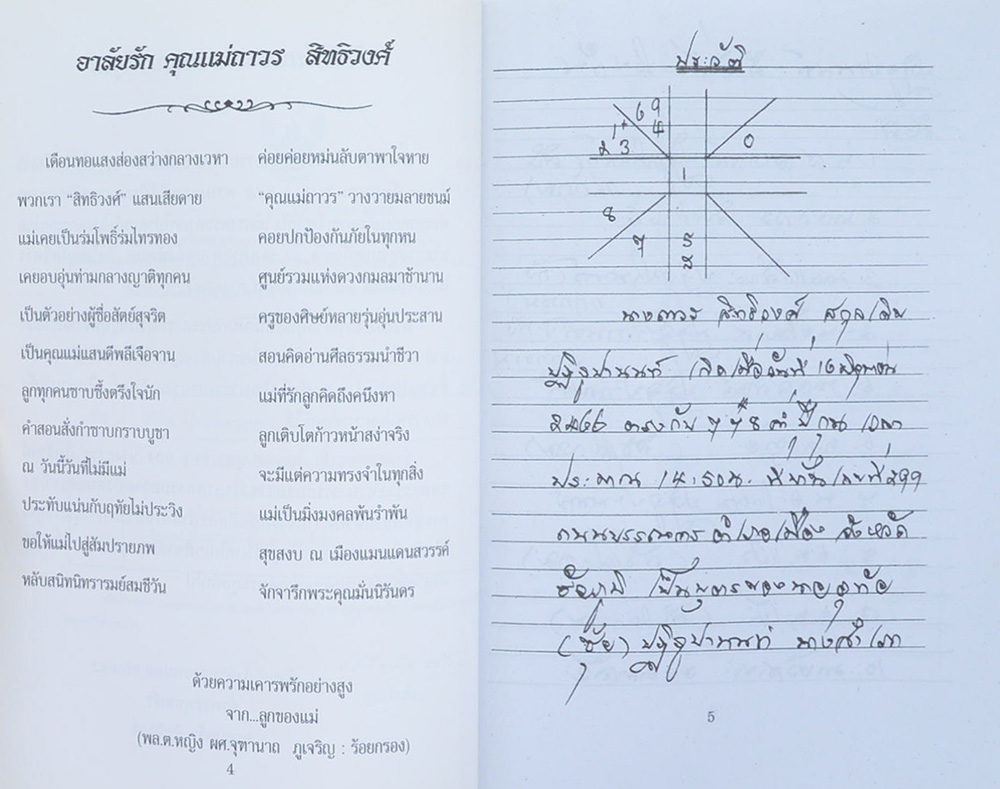 อาลัยรัก คุณแม่ถาวร สิทธิวงศ์
เดือนทอแสงส่องสว่างกลางเวหา ค่อยค่อยหม่นลับตาพาใจหาย
พวกเรา “สิทธิวงศ์” แสนเสียดาย “คุณแม่ถาวร” วางวายมลายชนม์
แม่เคยเป็นร่มโพธิ์ร่มไทรทอง คอยปกป้องกันภัยในทุกหน
เคยอบอุ่นท่ามกลางญาติทุกคน ศูนย์รวมแห่งดวงกมลมาช้านาน
เป็นตัวอย่างผู้ซื่อสัตย์สุจริต ครูของศิษย์หลายรุ่นอุ่นประสาน
เป็นคุณแม่แสนดีพลีเจือจาน สอนคิดอ่านศีลธรรมนำชีวา
ลูกทุกคนซาบซึ้งตรึงใจนัก แม่ที่รักลูกคิดถึงคนึงหา
คำสอนสั่งกำซาบกราบบูชา ลูกเติบโตก้าวหน้าสง่าจริง
ณ วันนี้วันที่ไม่มีแม่ จะมีแต่ความทรงจำในทุกสิ่ง
ประทับแน่นกับฤทัยไม่ประวิง แม่เป็นมิ่งมงคลพันรำพัน
ขอให้แม่ไปสู่สัมปรายภพ สุขสงบ ณ เมืองแมนแดนสวรรค์
หลับสนิทนิทรารมย์สมชีวัน จักจารึกพระคุณมั่นนิรันดร
ด้วยความเคารพรักอย่างสูง
จาก...ลูกของแม่
(พล.ต.หญิง ผศ.จุฑานาถ ภูเจริญ : ร้อยกรอง)
4
ประวัติ
6 9
1 4
2 3 0
1
8
7 5
นางถาวร สิทธิวงศ์ สกุลเดิม
ปฏิฐปานนท์ เกิดเมื่อวันที่
2466 ตรงกับ ปีกุน เวลา
ประมาณ น. ที่บ้านเลขที่ 299
ถนนบรรณาการ อำเภอเมือง จังหวัด
ชัยภูมิ เป็นบุตรของนายอุทัย
(ซุ้ย) ปฏิฐปานนท์ นางสำเภา
5